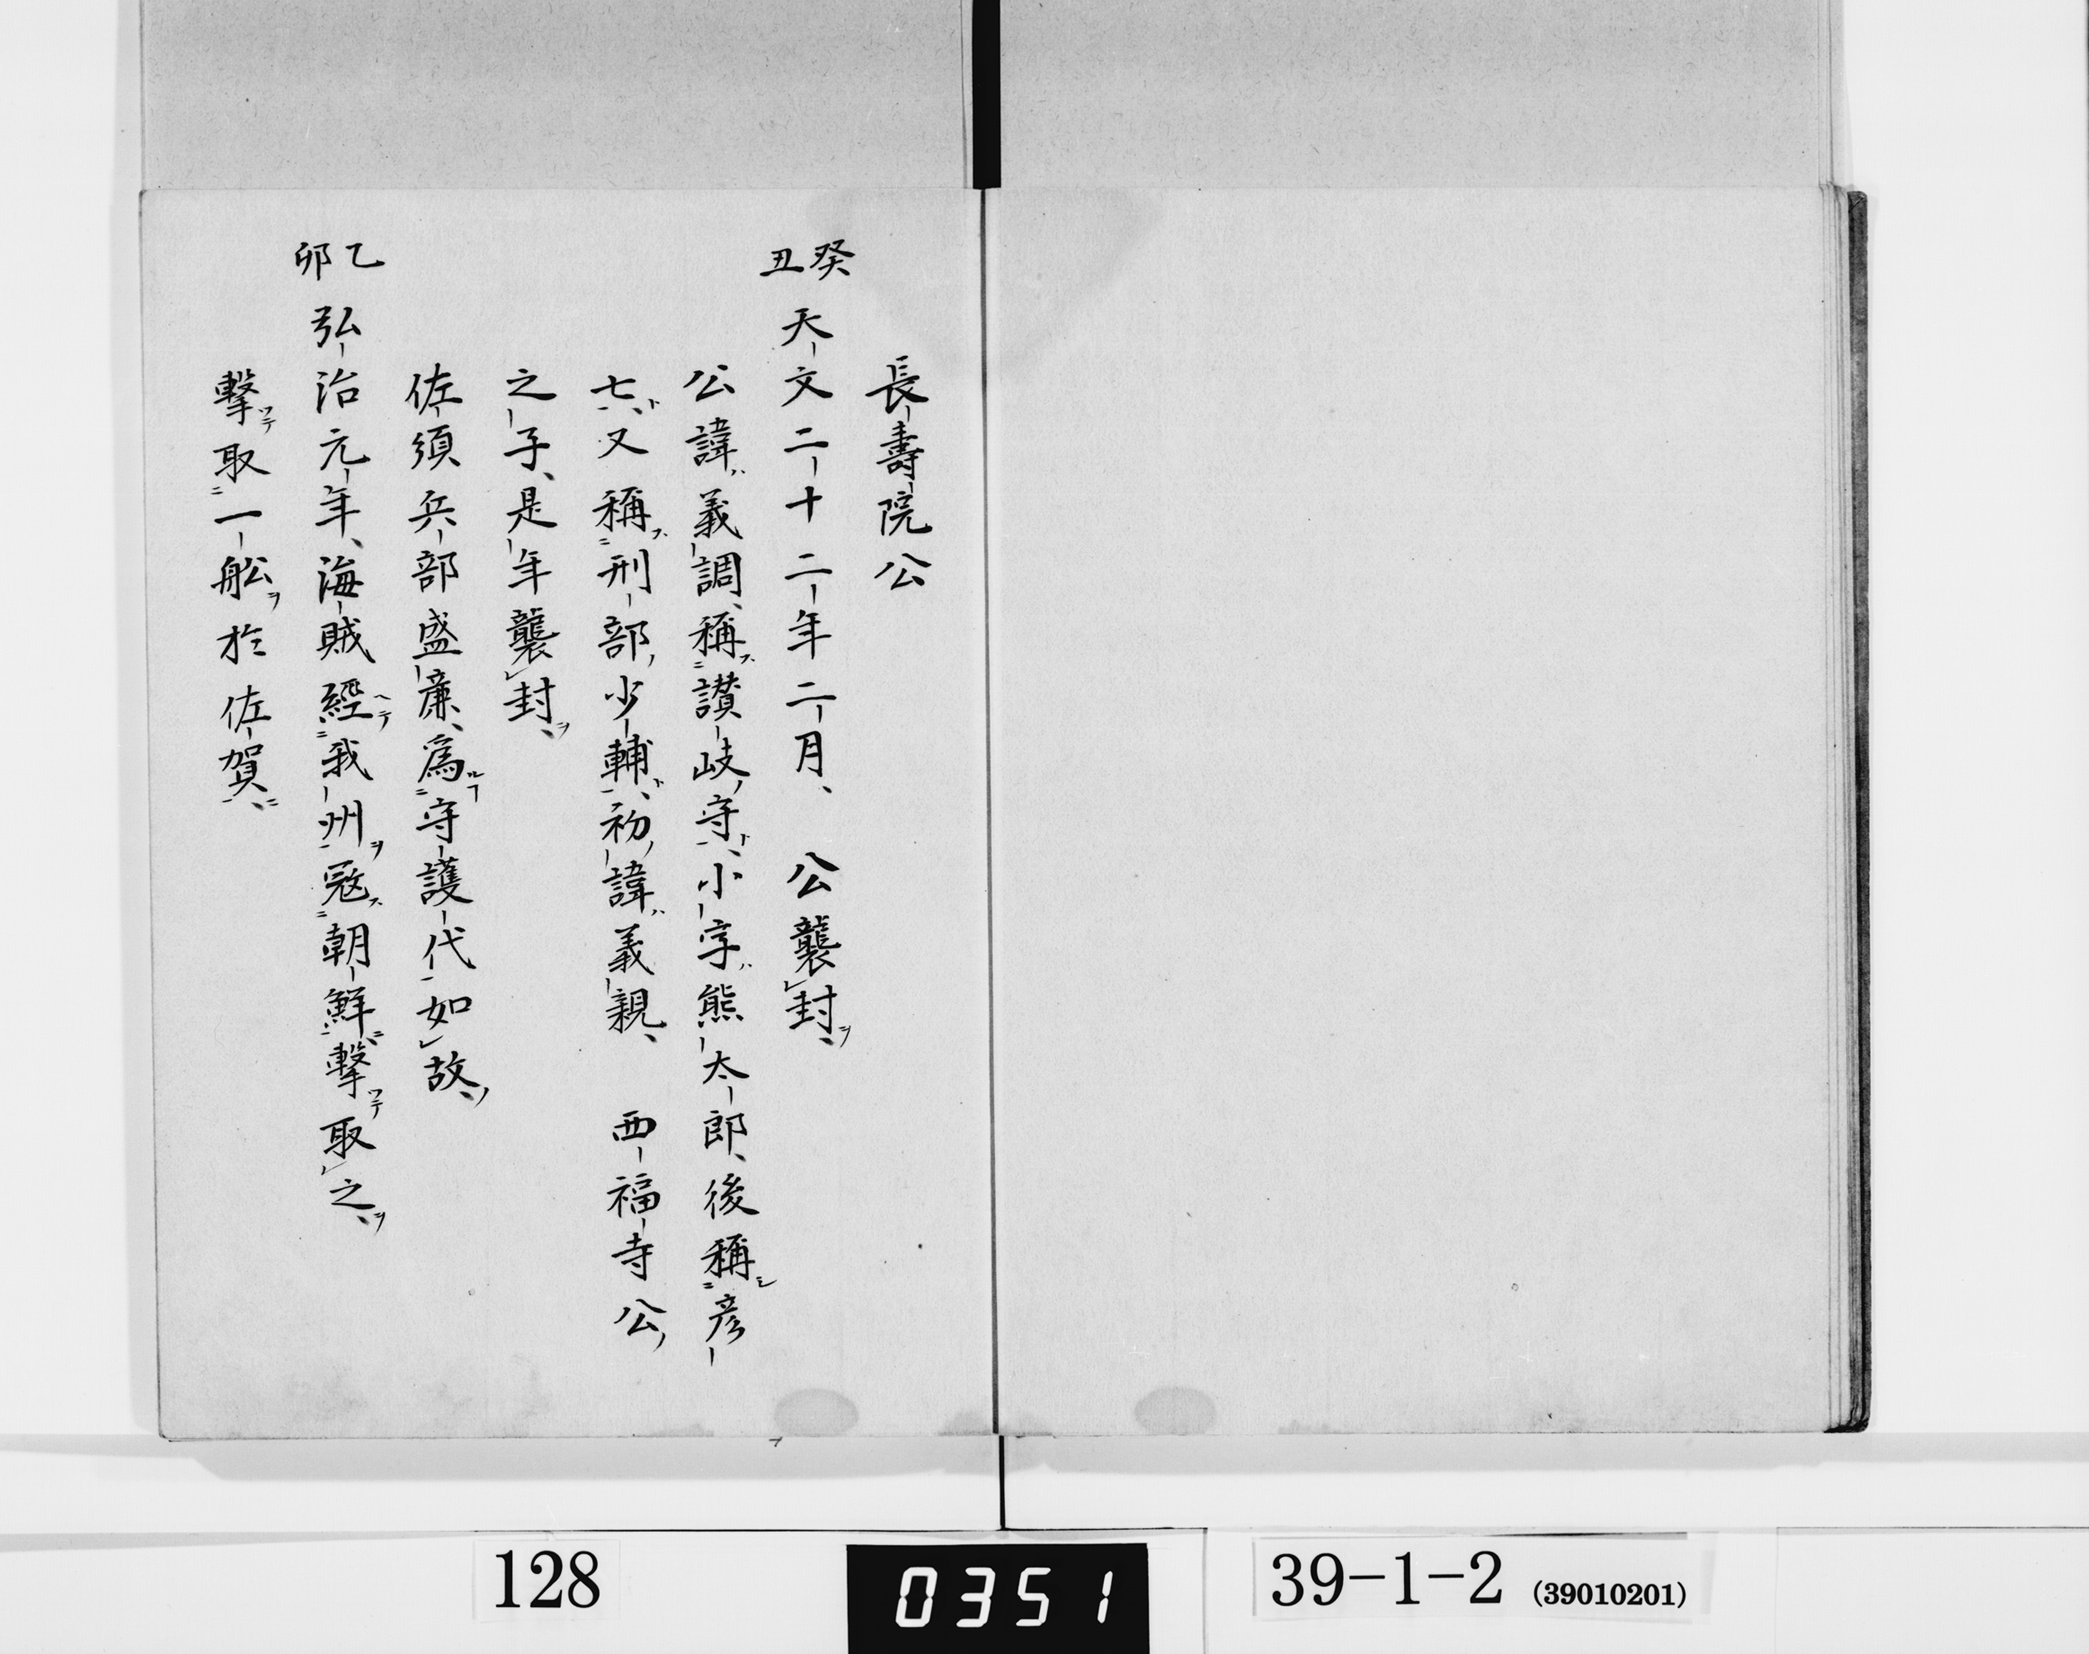 長壽院公
癸丑 天文二十二年二月、公襲封、
公諱義調、稱讃岐守、小字熊太郎、後稱彦
七、又稱刑部少輔、初諱義親、西福寺公
之子、是年襲封、
佐須兵部盛廉、爲守護代如故、
乙卯 弘治元年、海賊經我州寇朝鮮、擊取之、
擊取一舩於佐賀、
128
0351
39-1-2 (39010201)